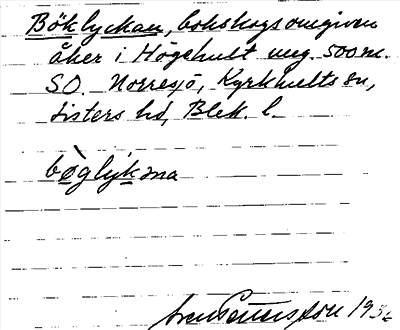 Böklyckan, bokskogsomgiven
åker i Högehult ung. 500 m.
SO Norresjö, Kyrkhults sn,
Listers hd, Blek. l.
bòglykna
Sven Pettersson 193